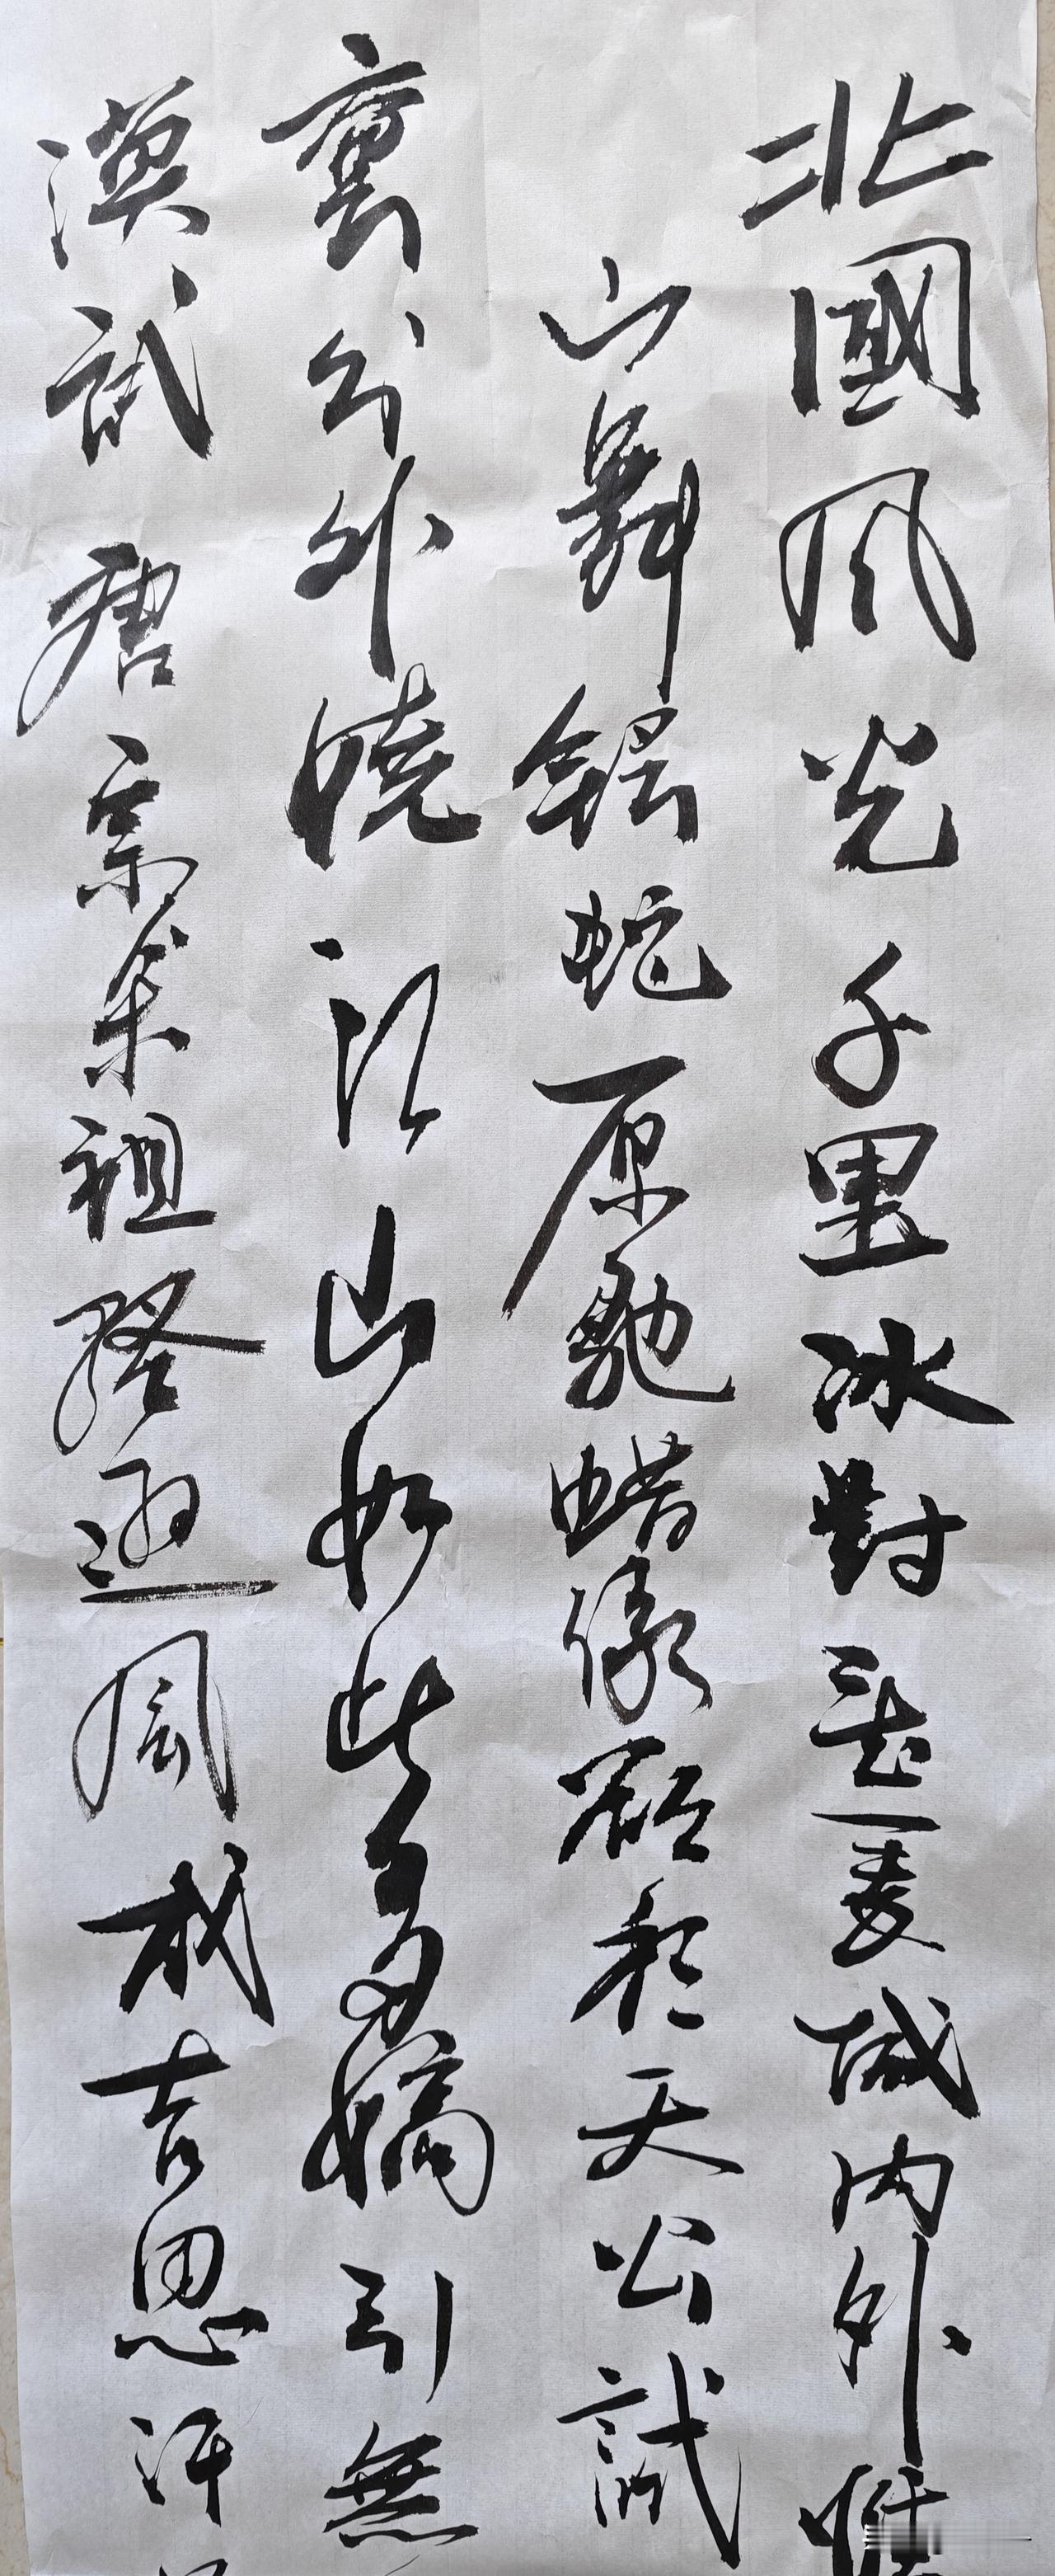 北國风光千里冰對望長城內外惟
山舞銀蛇原馳蜡像欲與天公試
裹分外嬈江山如此多嬌引無
漢武唐宗宋祖稍遜風成吉思汗